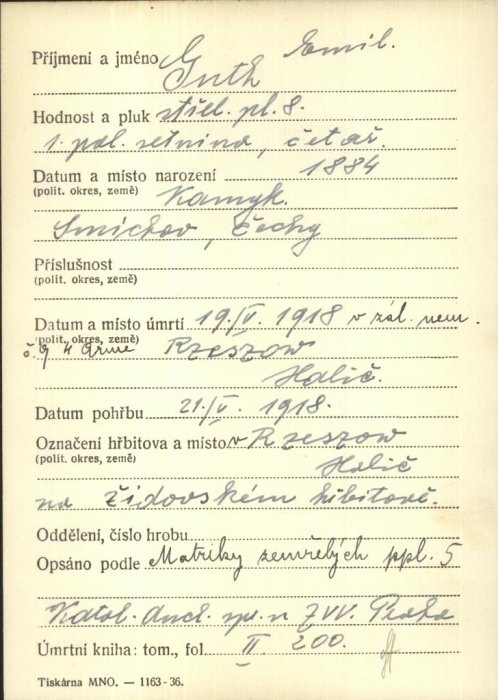 Příjmení a jméno Guth Emil.
Hodnost a pluk střel. pl. 8.
1. pol. setnina, četař
Datum a místo narození 1884
(polit. okres, země) Kamyk.
Smichov, Čechy
Příslušnost
(polit. okres, země)
Datum a místo úmrtí 19./V. 1918 v zál. nem.
(polit. okres, země) č. 9 4 Armé Rzeszow
Halič.
Datum pohřbu 21./V. 1918.
Označení hřbitova a místo v Rzeszow
(polit. okres, země) Halič
na židovském hřbitově.
Oddělení, číslo hrobu
Opsáno podle Matriky zemřelých ppl. 5
Katol. duch. spr. ZVV. Praha
Úmrtní kniha: tom., fol. II 200.
Tiskárna MNO. — 1163-36.